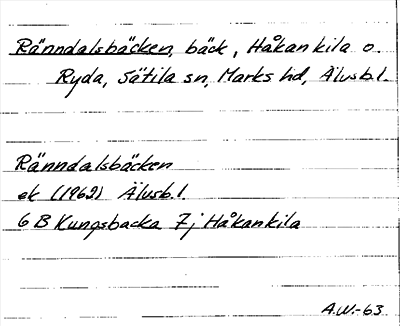 Ränndalsbäcken, bäck, Håkankila o.
Ryda, Sätila sn, Marks hd, Älvsb.l.
Ränndalsbäcken
ek (1962) Älvsb.l.
6 B Kungsbacka 7j Håkankila
A.W.-63